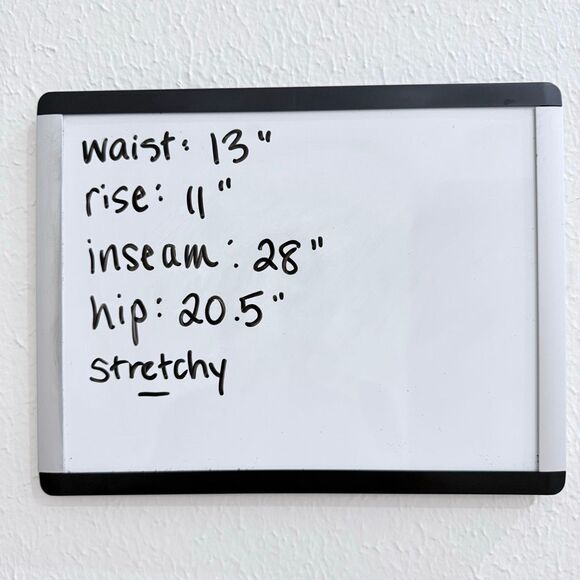 waist: 13"
rise: 11"
inseam: 28"
hip: 20.5"
stretchy